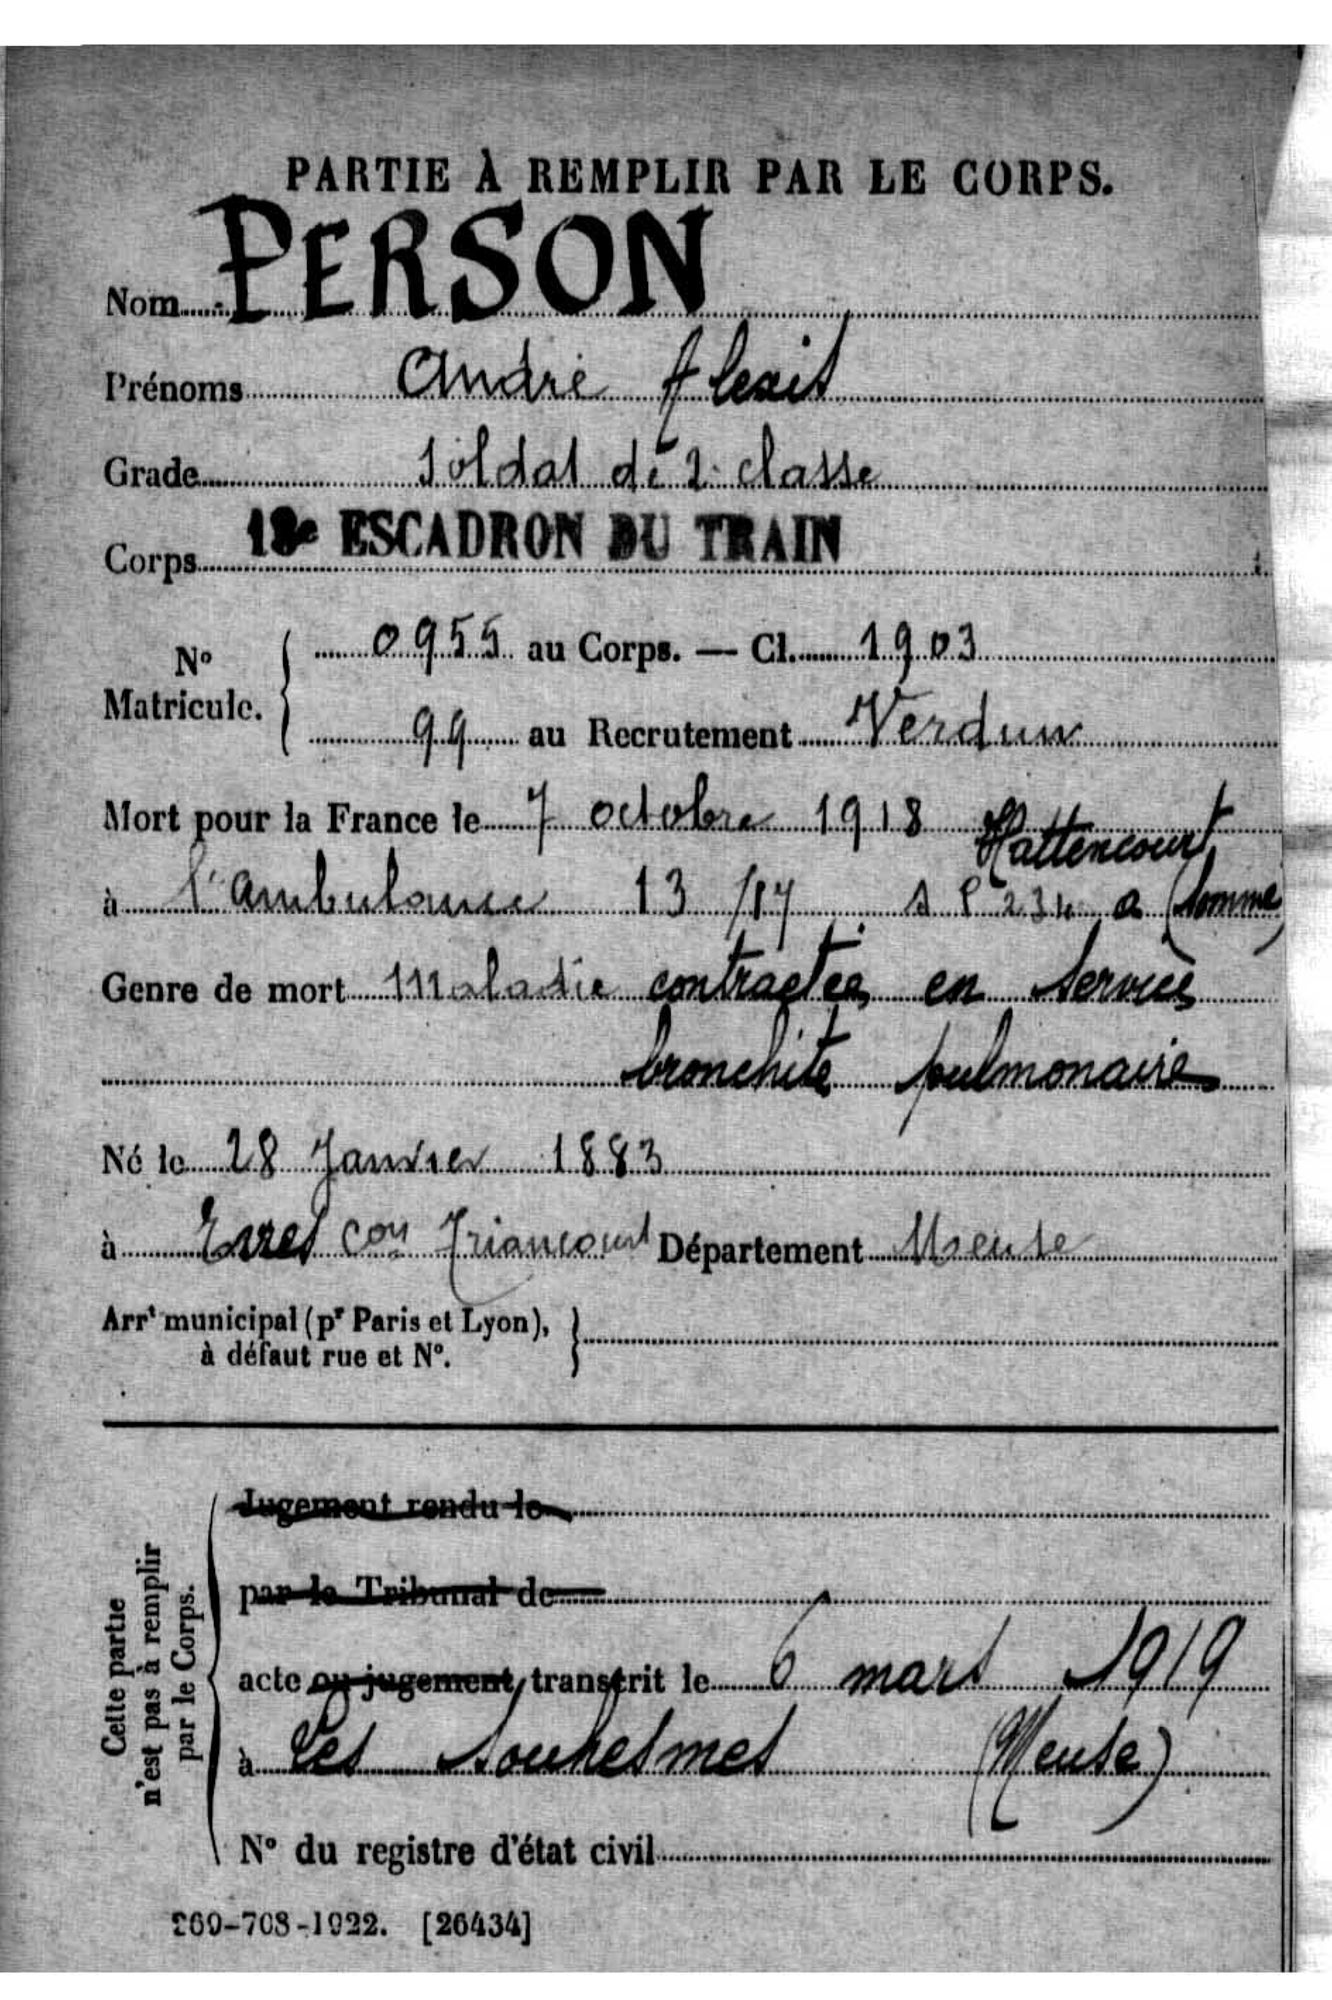 PARTIE À REMPLIR PAR LE CORPS.
Nom PERSON
Prénoms André Alexis
Grade Soldat de 2e classe
Corps 13e ESCADRON DU TRAIN
N° Matricule. 0955 au Corps. — Cl. 1903
99 au Recrutement Verdun
Mort pour la France le 7 octobre 1918 Hattencourt
à l'ambulance 13/17 S P 234 a (Somme)
Genre de mort Maladie contractée en service
bronchite pulmonaire
Né le 28 Janvier 1883
à con Triaucourt Département Meuse
Arrt municipal (pr Paris et Lyon),
à défaut rue et N°.
Cette partie
n'est pas à remplir
par le Corps.
Jugement rendu le
par le Tribunal de
acte ou jugement transcrit le 6 mars 1919
à Les Souhesmes (Meuse)
N° du registre d'état civil
269-708-1922. [26434]